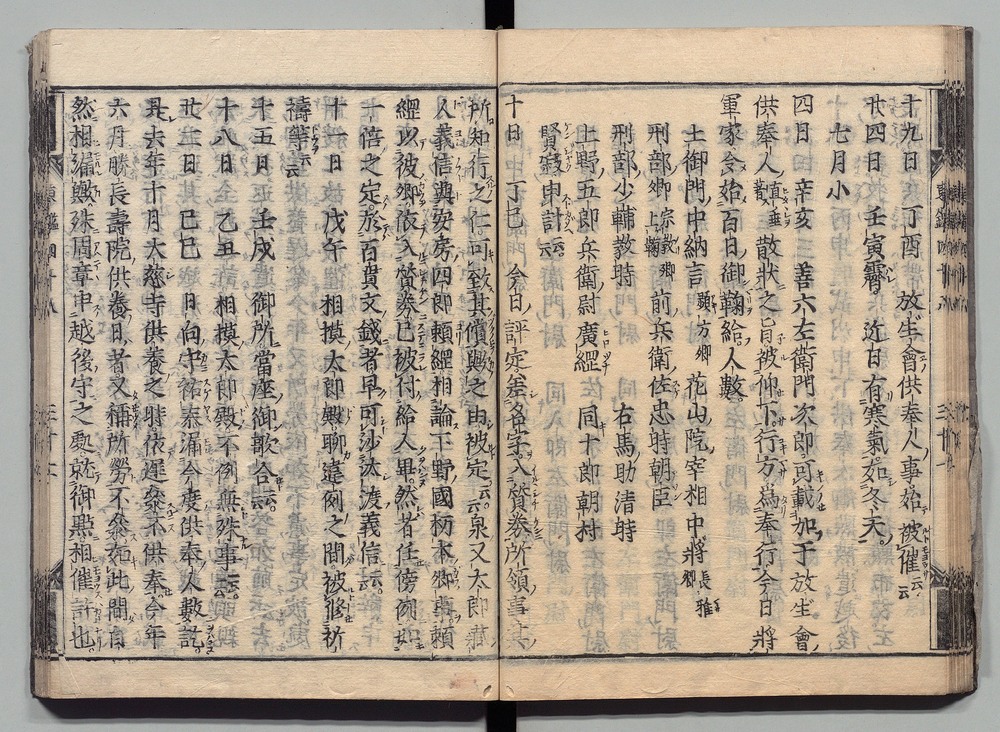 十九日 丁酉 放生會供奉人事始被催云云
廿四日 壬寅 霽 近日有寒氣如冬天
七月小
四日 辛亥 善六左衛門次郎可載加于放生會
供奉人直垂着散状之旨被仰下行方為奉行今日將
軍家令始百日御鞠給人數
土御門中納言顯方卿 花山院宰相中將長雅卿
刑部卿宗教卿上鞠 前兵衛佐忠時朝臣
刑部少輔教時 右馬助清時
上野五郎兵衛尉廣綱 同十郎朝村
賢寂申計云云
十日 丁巳 今日評定差名字入賛券所領事其
所知行之仁可致其償與之由被定云云泉又太郎藏
人義信與安房四郎頼綱相論下野國栃本郷事頼
綱以被郷依入賛券已被付給人畢然者任傍例如
十倍之定於百貫文錢者早可沙汰渡義信云云
十一日 戊午 相摸太郎殿聊違例之間被修祈
禱等云云
十五日 壬戌 御所當座御歌合云云
十八日 乙丑 相摸太郎殿不例無殊事云云
廿二日 己巳 日向守祐泰漏今度供奉人數訖
是去年十月大慈寺供養之時依遲參不供奉今年
六月勝長壽院供養日者又稱所勞不參如此間自
然相漏歟殊周章申越後守之處就御點相催許也
東鑑四十八
三十一
東鑑四十八